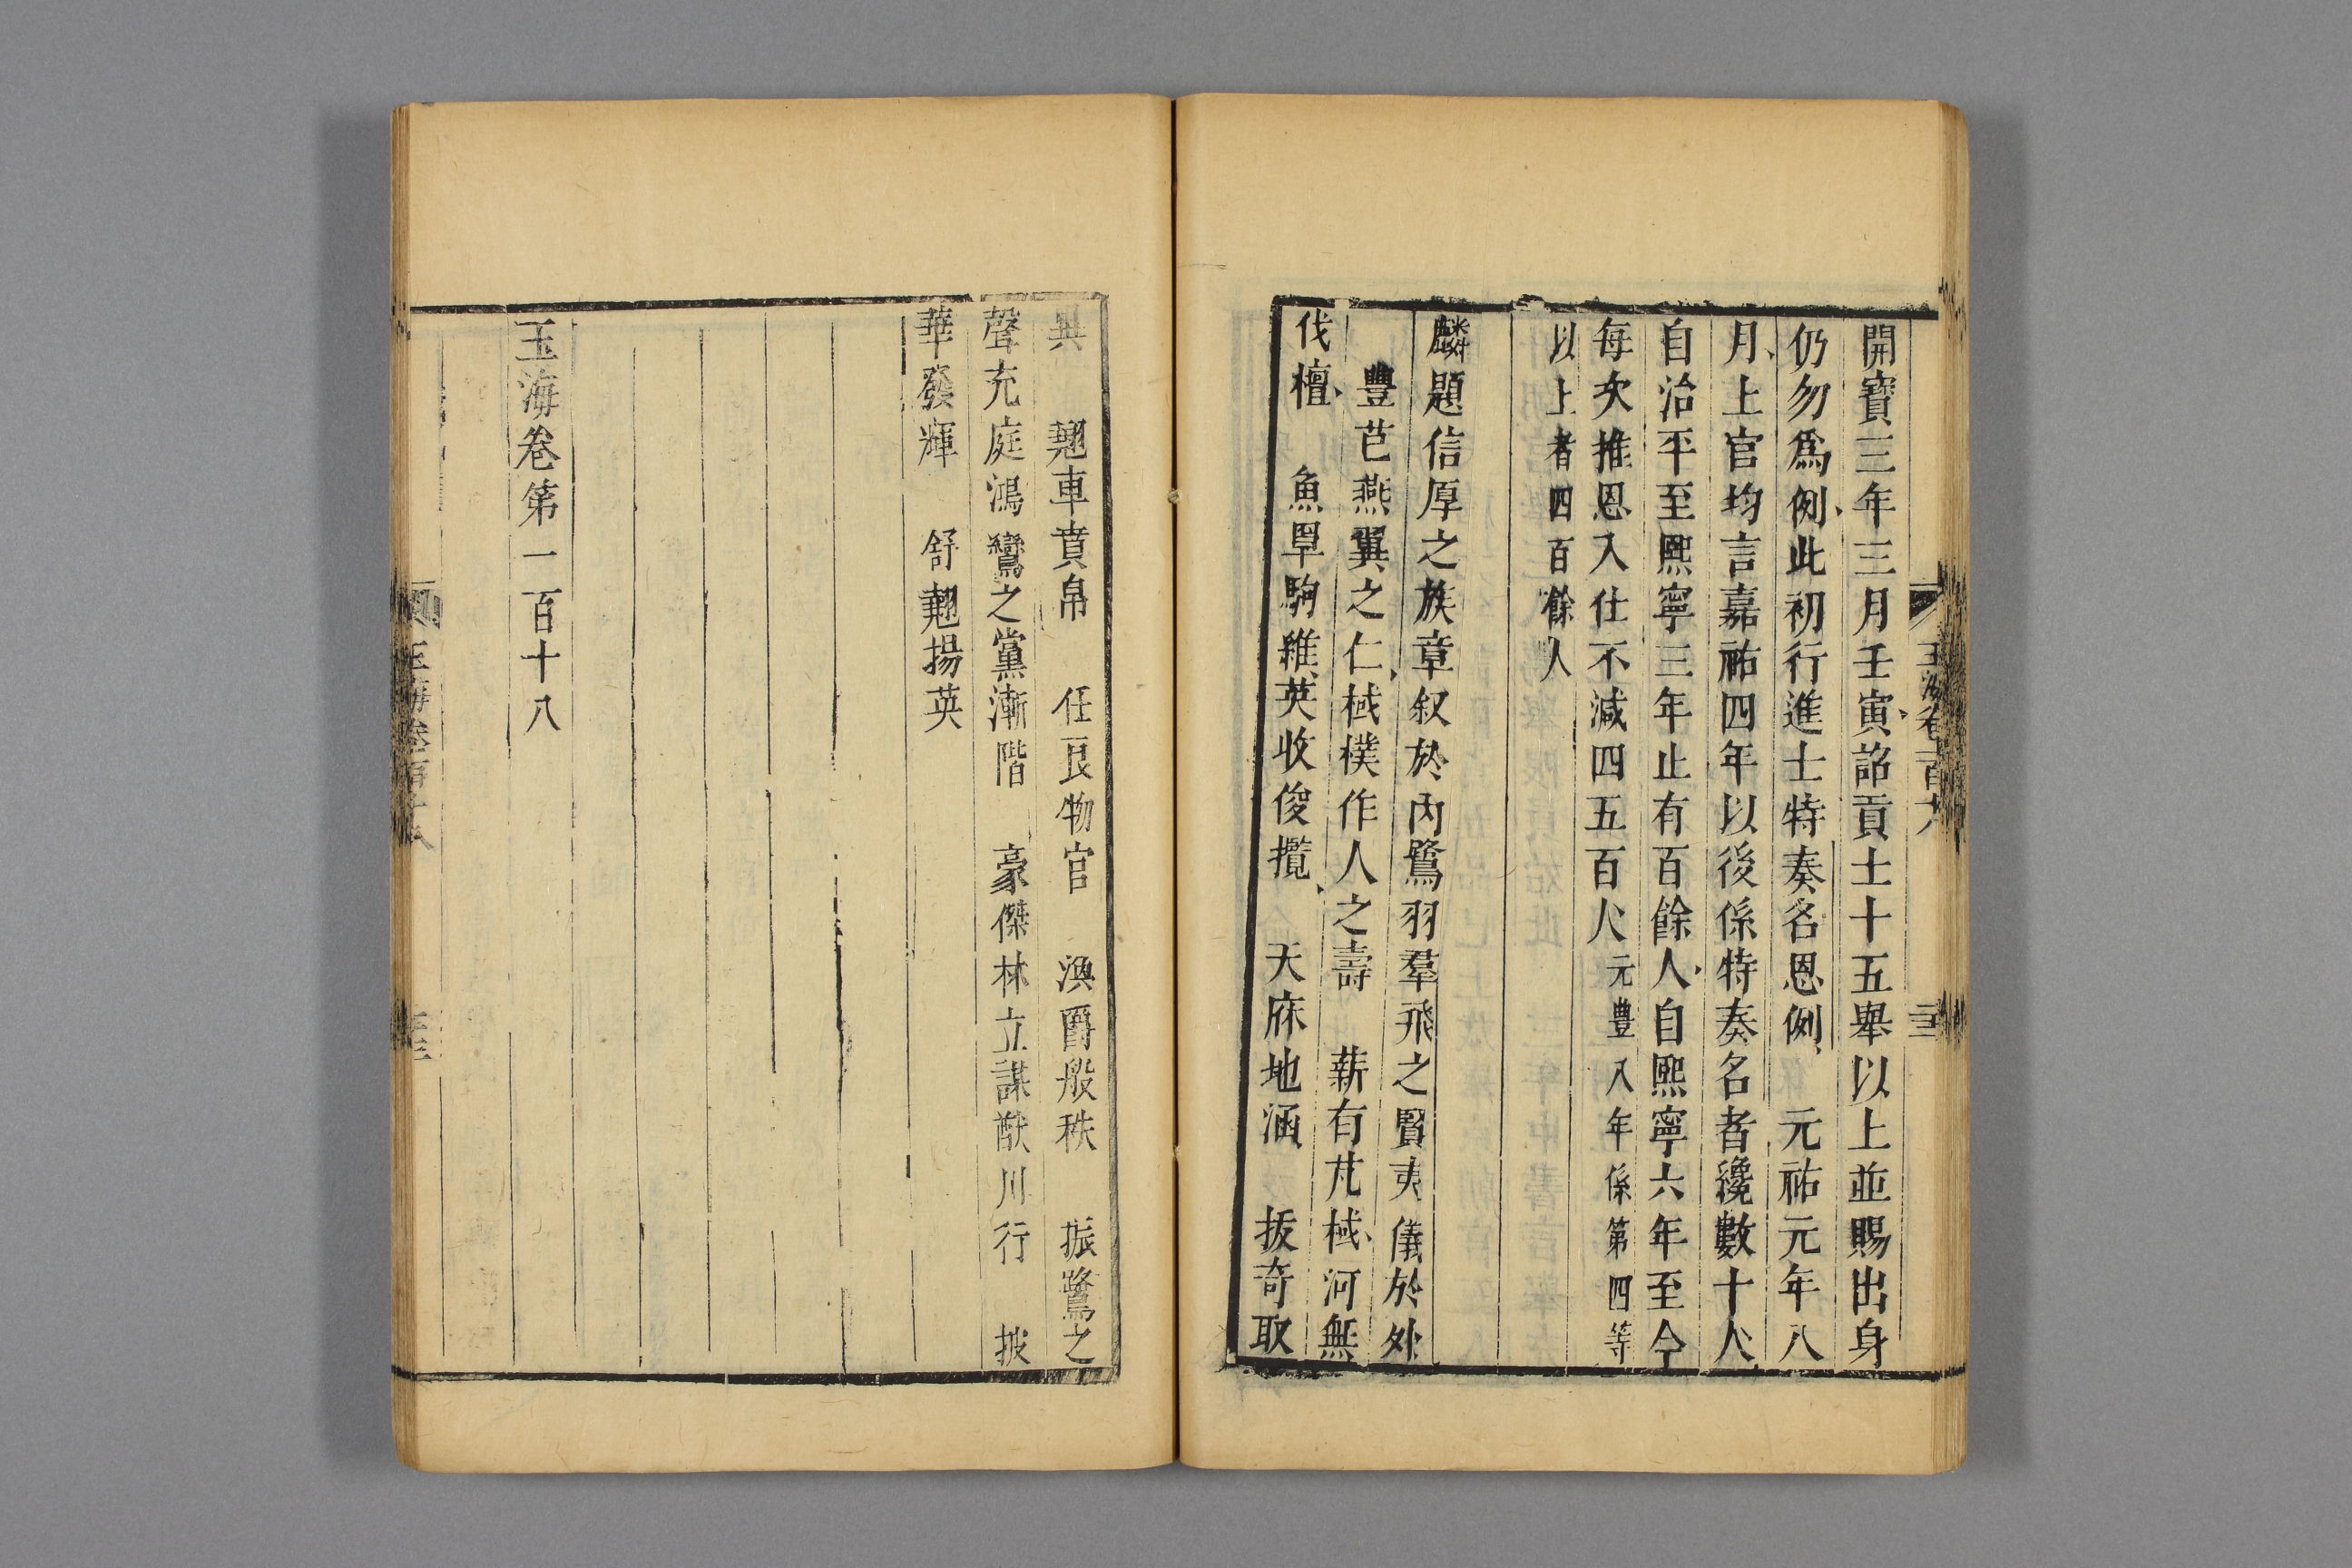 開寶三年三月壬寅詔貢士十五舉以上並賜出身
仍勿爲例此初行進士特奏名恩例 元祐元年八
月上官均言嘉祐四年以後係特奏名者纔數十人
自治平至熙寧三年止有百餘人自熙寧六年至今
每次推恩入仕不減四五百人元豊八年係第四等
以上者四百餘人
麟題信厚之族章叙於内鷺羽羣飛之賢夷儀於外
豐芑燕翼之仁棫樸作人之壽 薪有芃棫河無
伐檀 魚罩駒維英收俊攬 天庥地涵 拔奇取
異 翹車賁帛 任良物官 渙爵般秩 振鷺之
聲充庭鴻鸞之黨漸階 豪傑林立謀猷川行 披
華發輝 舒翹揚英
玉海卷第一百十八
玉海卷百十八